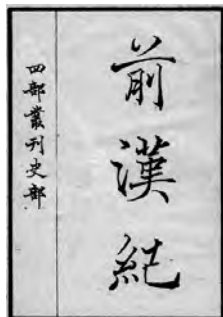 前漢紀
四部叢刊史部